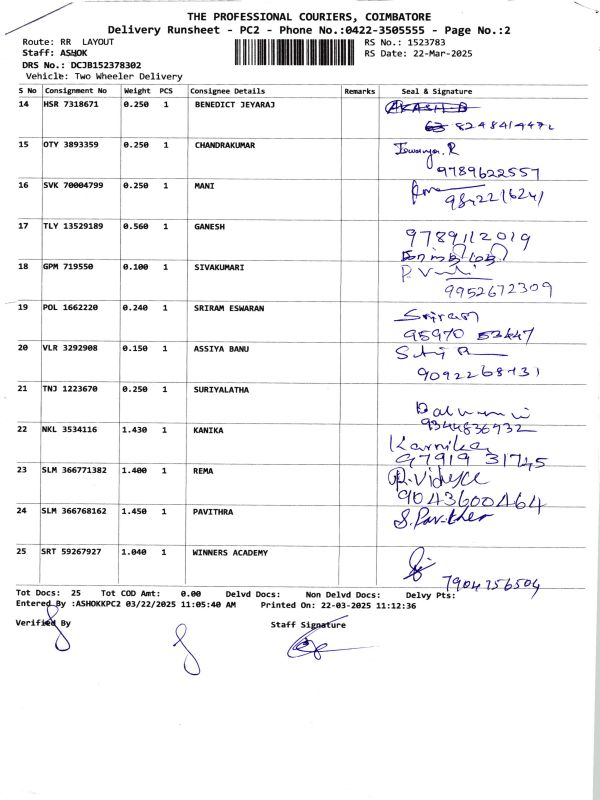 THE PROFESSIONAL COURIERS, COIMBATORE
Delivery Runsheet - PC2 - Phone No.:0422-3505555 - Page No.:2
Route: RR LAYOUT RS No.: 1523783
Staff: ASHOK RS Date: 22-Mar-2025
DRS No.: DCJB152378302
Vehicle: Two Wheeler Delivery
S No Consignment No Weight PCS Consignee Details Remarks Seal & Signature
14 HSR 7318671 0.250 1 BENEDICT JEYARAJ AKASH B
15 OTY 3893359 0.250 1 CHANDRAKUMAR
9789622557
16 SVK 70004799 0.250 1 MANI
9842216241
17 TLY 13529189 0.560 1 GANESH
9789112019
18 GPM 719550 0.100 1 SIVAKUMARI
9952672309
19 POL 1662220 0.240 1 SRIRAM ESWARAN Sriram
95970 53447
20 VLR 3292908 0.150 1 ASSIYA BANU
21 TNJ 1223670 0.250 1 SURIYALATHA
9344836932
22 NKL 3534116 1.430 1 KANIKA Karnika
97919 31745
23 SLM 366771382 1.400 1 REMA
9043600464
24 SLM 366768162 1.450 1 PAVITHRA
25 SRT 59267927 1.040 1 WINNERS ACADEMY
7904756504
Tot Docs: 25 Tot COD Amt: 0.00 Delvd Docs: Non Delvd Docs: Delvy Pts:
Entered By :ASHOKKPC2 03/22/2025 11:05:40 AM Printed On: 22-03-2025 11:12:36
Verified By Staff Signature